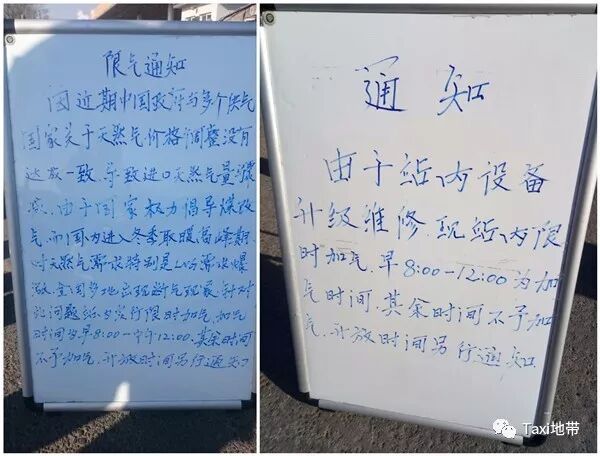 限气通知
因近期中国政府与多个供气
国家关于天然气价格调整没有
达成一致.导致进口天然气量减
由于国家极力倡导煤改
气.而国内进入冬季取暖高峰期
对天然气需求特别是LNG需求爆
涨.全国多地出现断气现象.针对
此问题站内实行限时加气.加气
时间为早8:00-中午12:00.其余时间
不予加气.计放时间另行通知
通知
由于站内设备
升级维修.现站内限
时加气.早8:00-12:00为加
气时间.其余时间不予加
气.计放时间另行通知
Taxi地带